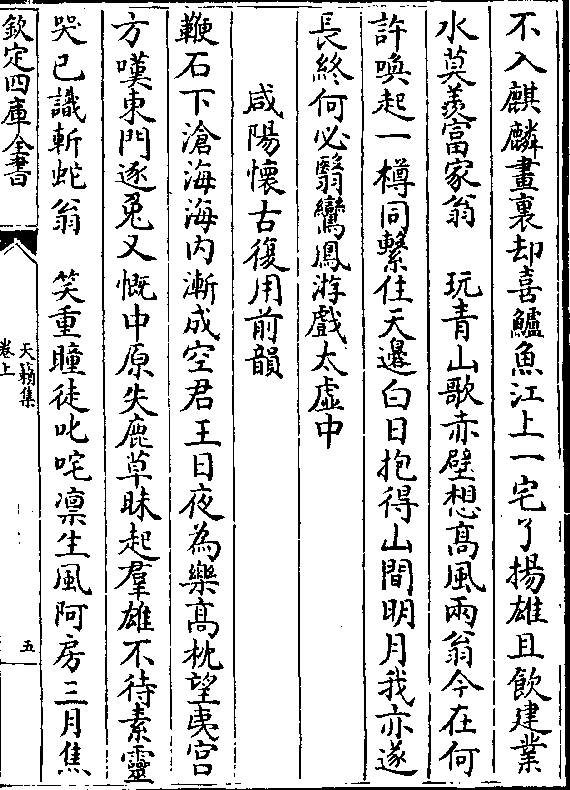 不入麒麟畫裏却喜鱸魚江上一宅了揚雄且飲建業
水莫羨富家翁　玩青山歌赤壁想髙風兩翁今在何
許喚起一樽同繫住天邊白日抱得山間明月我亦遂
長終何必翳鸞鳳游戲太虚中
咸陽懷古復用前韻
鞭石下滄海海内漸成空君王日夜為樂髙枕望夷宫
方嘆東門逐兎又慨中原失鹿草昧起羣雄不待素靈
哭已識斬蛇翁　笑重瞳徒叱咤凛生風阿房三月焦
欽定四庫全書
天籟集
卷上
五